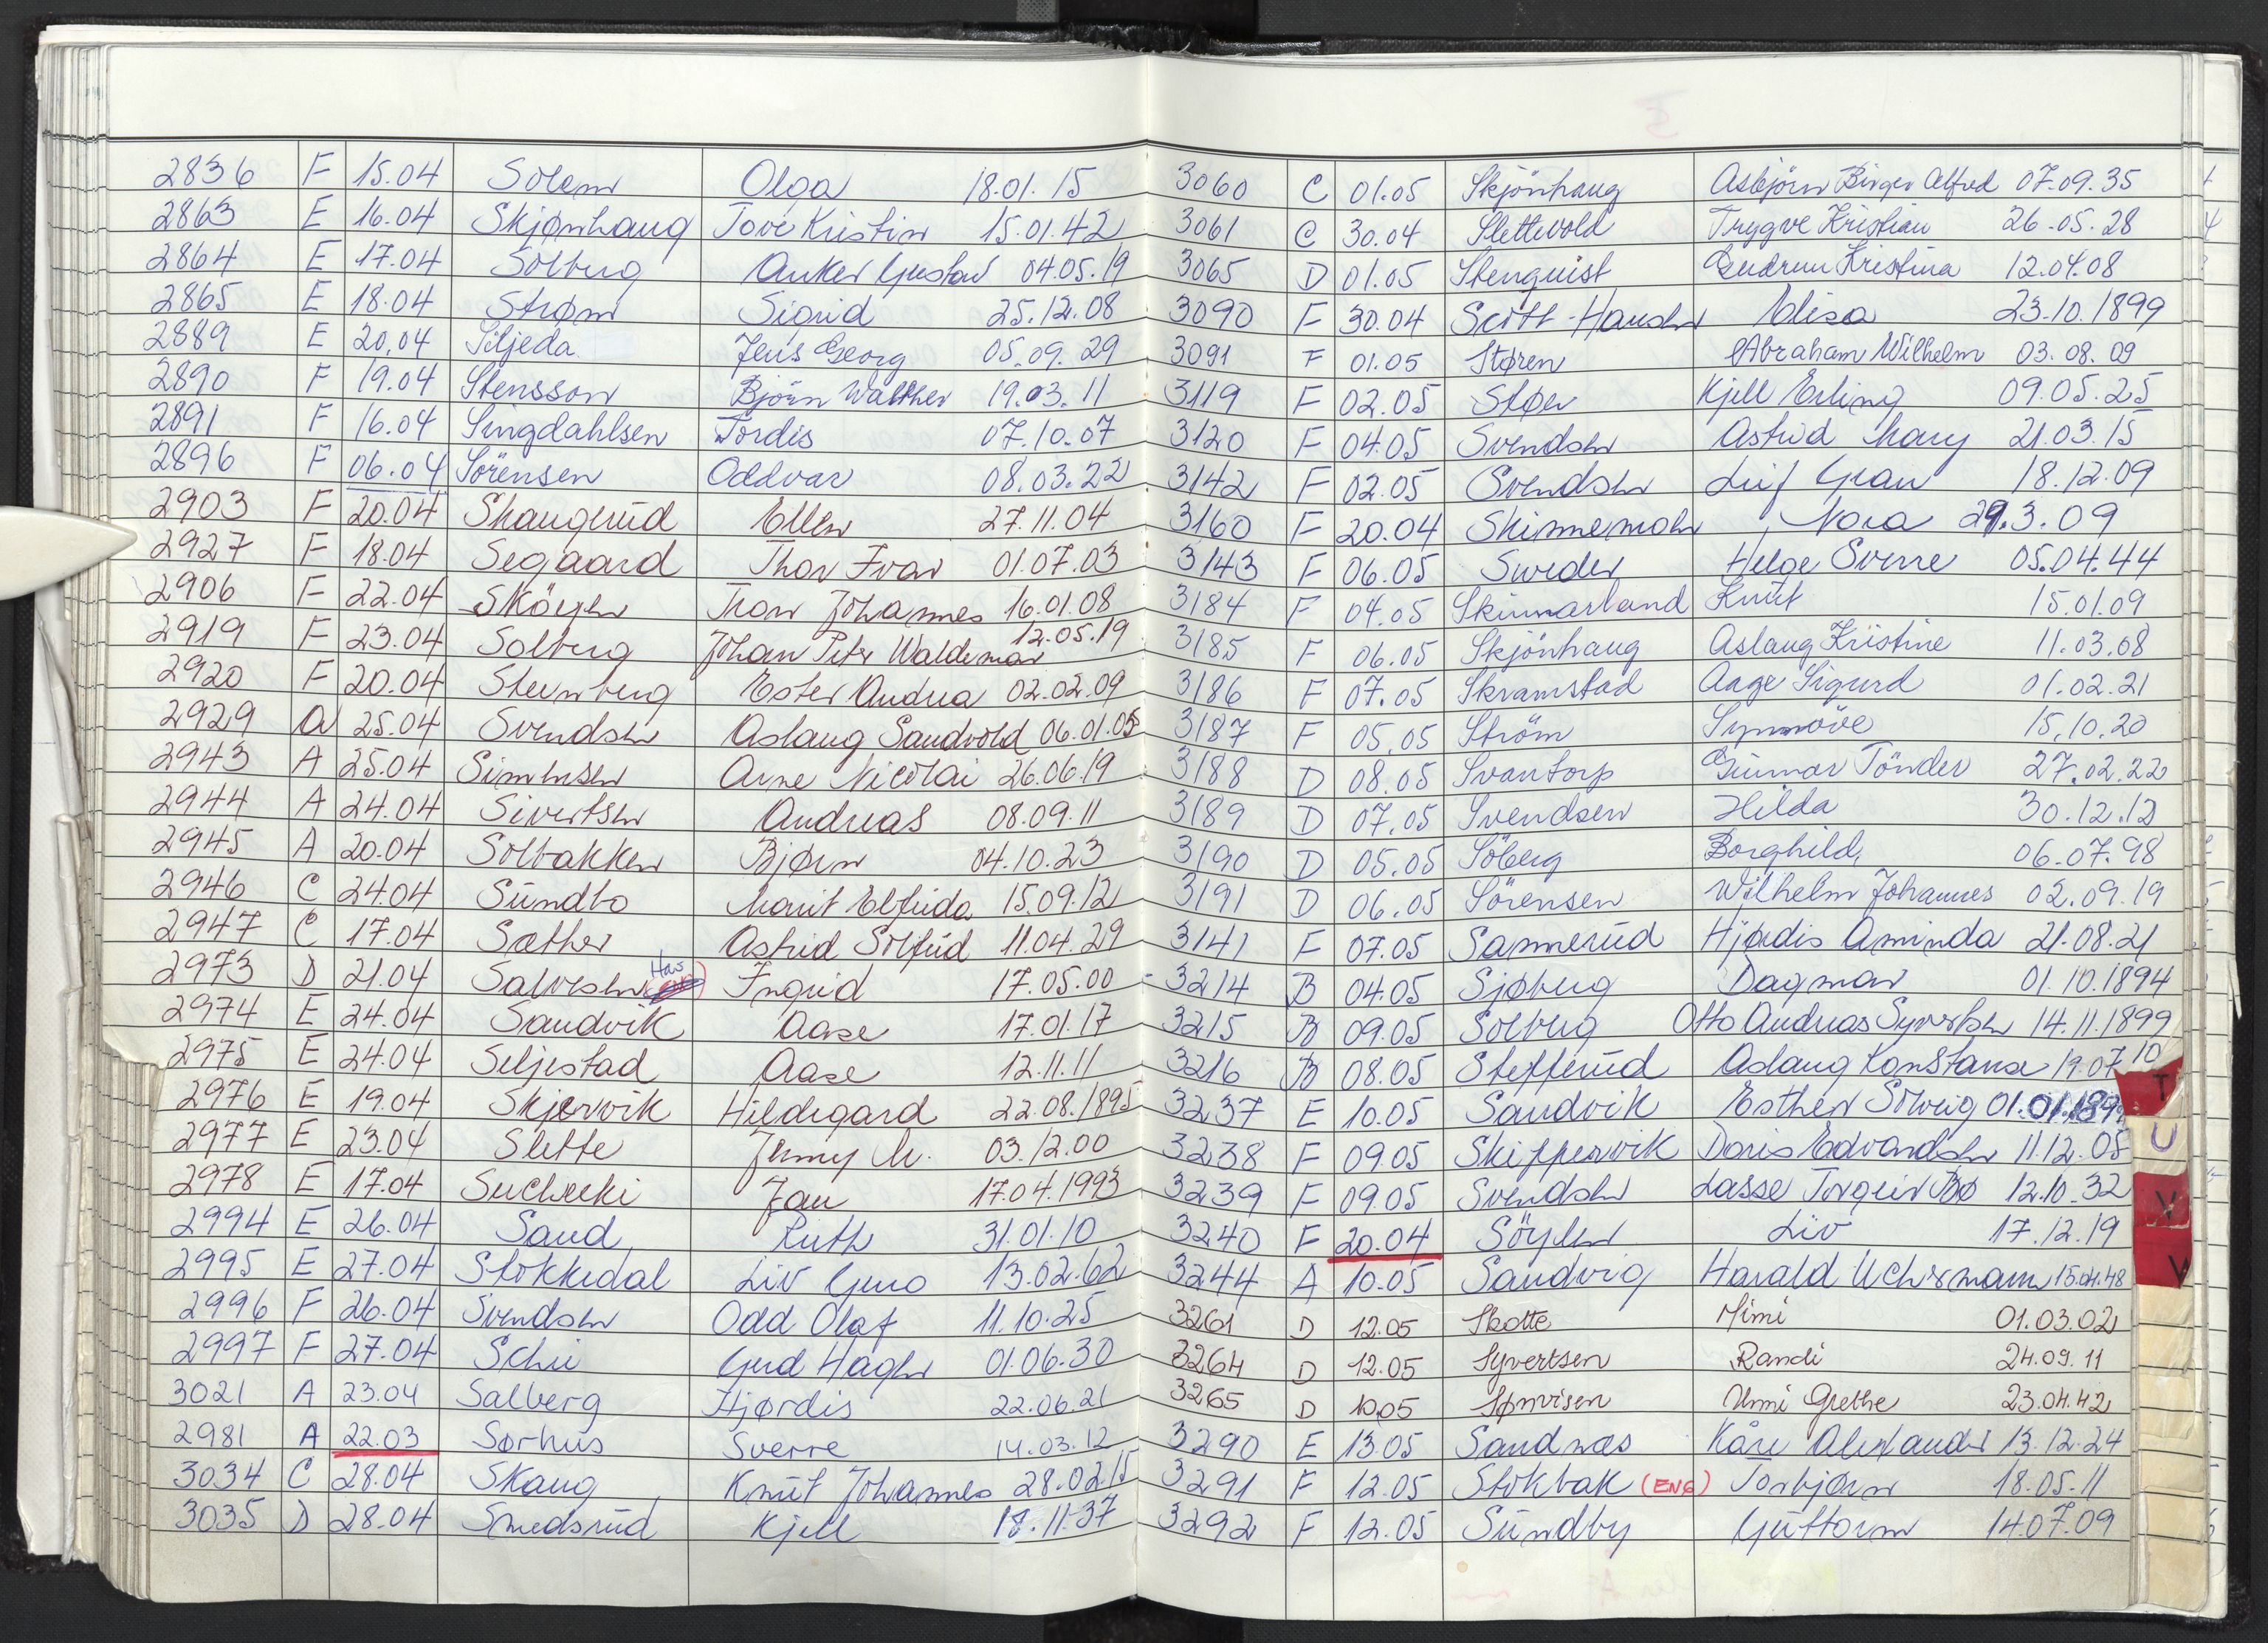 2836 F 15.04 Solem Olga 18.01.15
2863 E 16.04 Skjønhaug Tove Kristin 15.01.42
2864 E 17.04 Solberg Anker Gustav 04.05.19
2865 E 18.04 Strøm Sigrid 25.12.08
2889 E 20.04 Siljeda Jens Georg 05.09.29
2890 F 19.04 Stensson Björn Walther 19.03.11
2891 F 16.04 Singdahlsen Tordis 07.10.07
2896 F 06.04 Sörensen Oddvar 08.03.22
2903 F 20.04 Skaugerud Ellen 27.11.04
2927 F 18.04 Segaard Thor Ivar 01.07.03
2906 F 22.04 Sköyen Thor Johannes 16.01.08
2919 F 23.04 Solberg Johan Peter Waldemar 12.05.19
2920 F 20.04 Steinberg Ester Andrea 02.02.09
2929 A 25.04 Svendsen Aslaug Sandvold 06.01.05
2943 A 25.04 Simensen Arne Nicolai 26.06.19
2944 A 24.04 Sivertsen Andreas 08.09.11
2945 A 20.04 Solbakken Bjørn 04.10.23
2946 C 24.04 Sundbo Marit Elfrida 15.09.12
2947 C 17.04 Sæther Astrid Solfrid 11.04.29
2973 D 21.04 Salvesen Ingrid 17.05.00
2974 E 24.04 Sandvik Aase 17.01.17
2975 E 24.04 Seljestad Aase 12.11.11
2976 E 19.04 Skjervik Hildegard 22.08.1895
2977 E 23.04 Slette Jenny M. 03.12.00
2978 E 17.04 Suchecki Jan 17.04.1993
2994 E 26.04 Sand Ruth 31.01.10
2995 E 27.04 Stokkedal Liv Guro 13.02.62
2996 F 26.04 Svendsen Odd Olaf 11.10.25
2997 F 27.04 Schie Gerd Hagen 01.06.30
3021 A 23.04 Salberg Hjørdis 22.06.21
2981 A 22.03 Sørhus Sverre 14.03.12
3034 C 28.04 Skaug Knut Johannes 28.02.15
3035 D 28.04 Smedsrud Kjell 18.11.37
3060 C 01.05 Skjönhaug Asbjörn Birger Alfred 07.09.35
3061 C 30.04 Slettevold Trygve Kristian 26.05.28
3065 D 01.05 Stenquist Gudrun Kristina 12.04.08
3090 F 30.04 Scott-Hansen Elisa 23.10.1899
3091 F 01.05 Støren Abraham Wilhelm 03.08.09
3119 F 02.05 Støen Kjell Erling 09.05.25
3120 F 04.05 Svendsen Astrid Mary 21.03.15
3142 F 02.05 Svendsen Leif Gran 18.12.09
3160 F 20.04 Skinnemoen Nora 29.3.09
3143 F 06.05 Sveder Helge Sverre 05.04.44
3184 F 04.05 Skinnarland Knut 15.01.09
3185 F 06.05 Skjönhaug Aslaug Kristine 11.03.08
3186 F 07.05 Skramstad Aage Sigurd 01.02.21
3187 F 05.05 Ström Synnöve 15.10.20
3188 D 08.05 Svantorp Gunnar Tönder 27.02.22
3189 D 07.05 Svendsen Hilda 30.12.12
3190 D 05.05 Söberg Borghild 06.07.98
3191 D 06.05 Sörensen Wilhelm Johannes 02.09.19
3141 F 07.05 Sannerud Hjørdis Aminda 21.08.21
3214 B 04.05 Sjøberg Dagmar 01.10.1894
3215 B 09.05 Solberg Otto Andreas Syvertsen 14.11.1899
3216 B 08.05 Stefferud Aslaug Konstanse 19.07.10
3237 E 10.05 Sandvik Esther Solveig 01.01.189
3238 F 09.05 Skippervik Doris Edvardsen 11.12.05
3239 F 09.05 Svendsen Lasse Torgeir Bø 12.10.32
3240 F 20.04 Söylen Liv 17.12.19
3244 A 10.05 Sandvig Harald Uchermann 15.04.48
3261 D 12.05 Skotte Mimi 01.03.02
3264 D 12.05 Syvertsen Randi 24.09.11
3265 D 10.05 Sønvisen Unni Grethe 23.04.42
3290 E 13.05 Sandnæs Kåre Alexander 13.12.24
3291 F 12.05 Stokbak (ENG) Torbjørn 18.05.11
3292 F 12.05 Sundby Guttorm 14.07.09
T
U
V